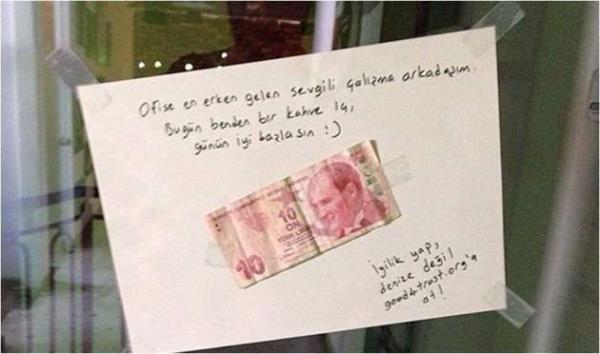 Ofise en erken gelen sevgili çalışma arkadaşım.
Bugün benden bir kahve iç,
günün iyi başlasın :)
10
ON
TÜRK LİRASI
10
İyilik yap,
denize değil
good4trust.org'a
at!